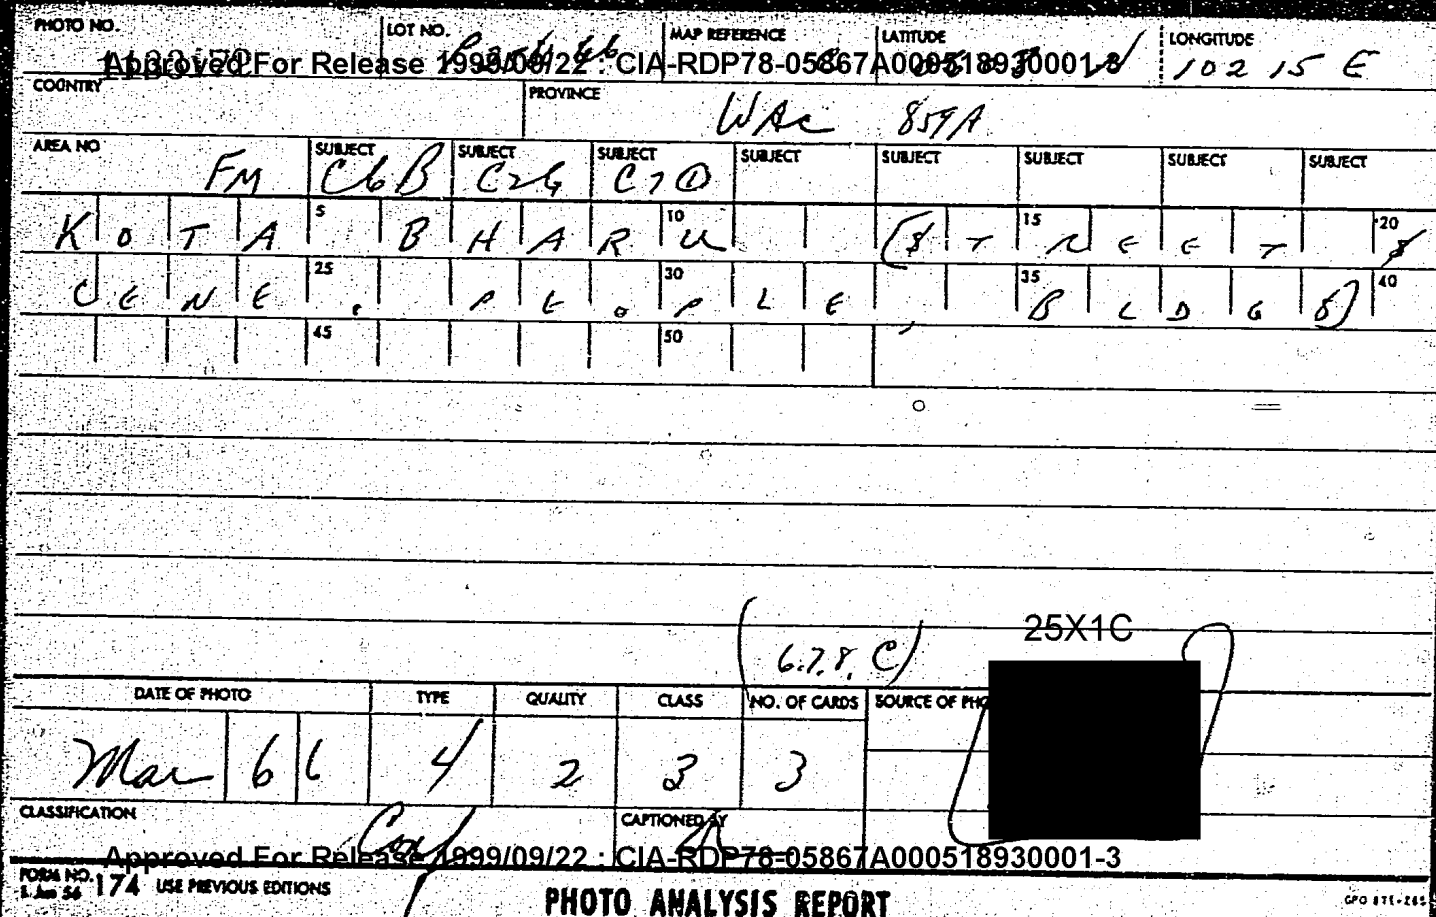 PHOTO NO. LOT NO. MAP REFERENCE LATITUDE LONGITUDE
Approved For Release 1999/09/22 : CIA-RDP78-05867A000518930001-3
102 15 E
COUNTRY PROVINCE
WAC 859A
AREA NO SUBJECT SUBJECT SUBJECT SUBJECT SUBJECT SUBJECT SUBJECT SUBJECT
FM C6B C2G C7D
5 10 15 20
KOTA BHARU (STREET S
25 30 35 40
CENE. PEOPLE, BLDGS)
45 50
25X1C
(6.7.8. C)
DATE OF PHOTO TYPE QUALITY CLASS NO. OF CARDS SOURCE OF PHO
Mar 66 4 2 3 3
CLASSIFICATION CAPTIONED BY
Conf
Approved For Release 1999/09/22 : CIA-RDP78-05867A000518930001-3
FORM NO. 174 USE PREVIOUS EDITIONS
1 Jun 56
PHOTO ANALYSIS REPORT